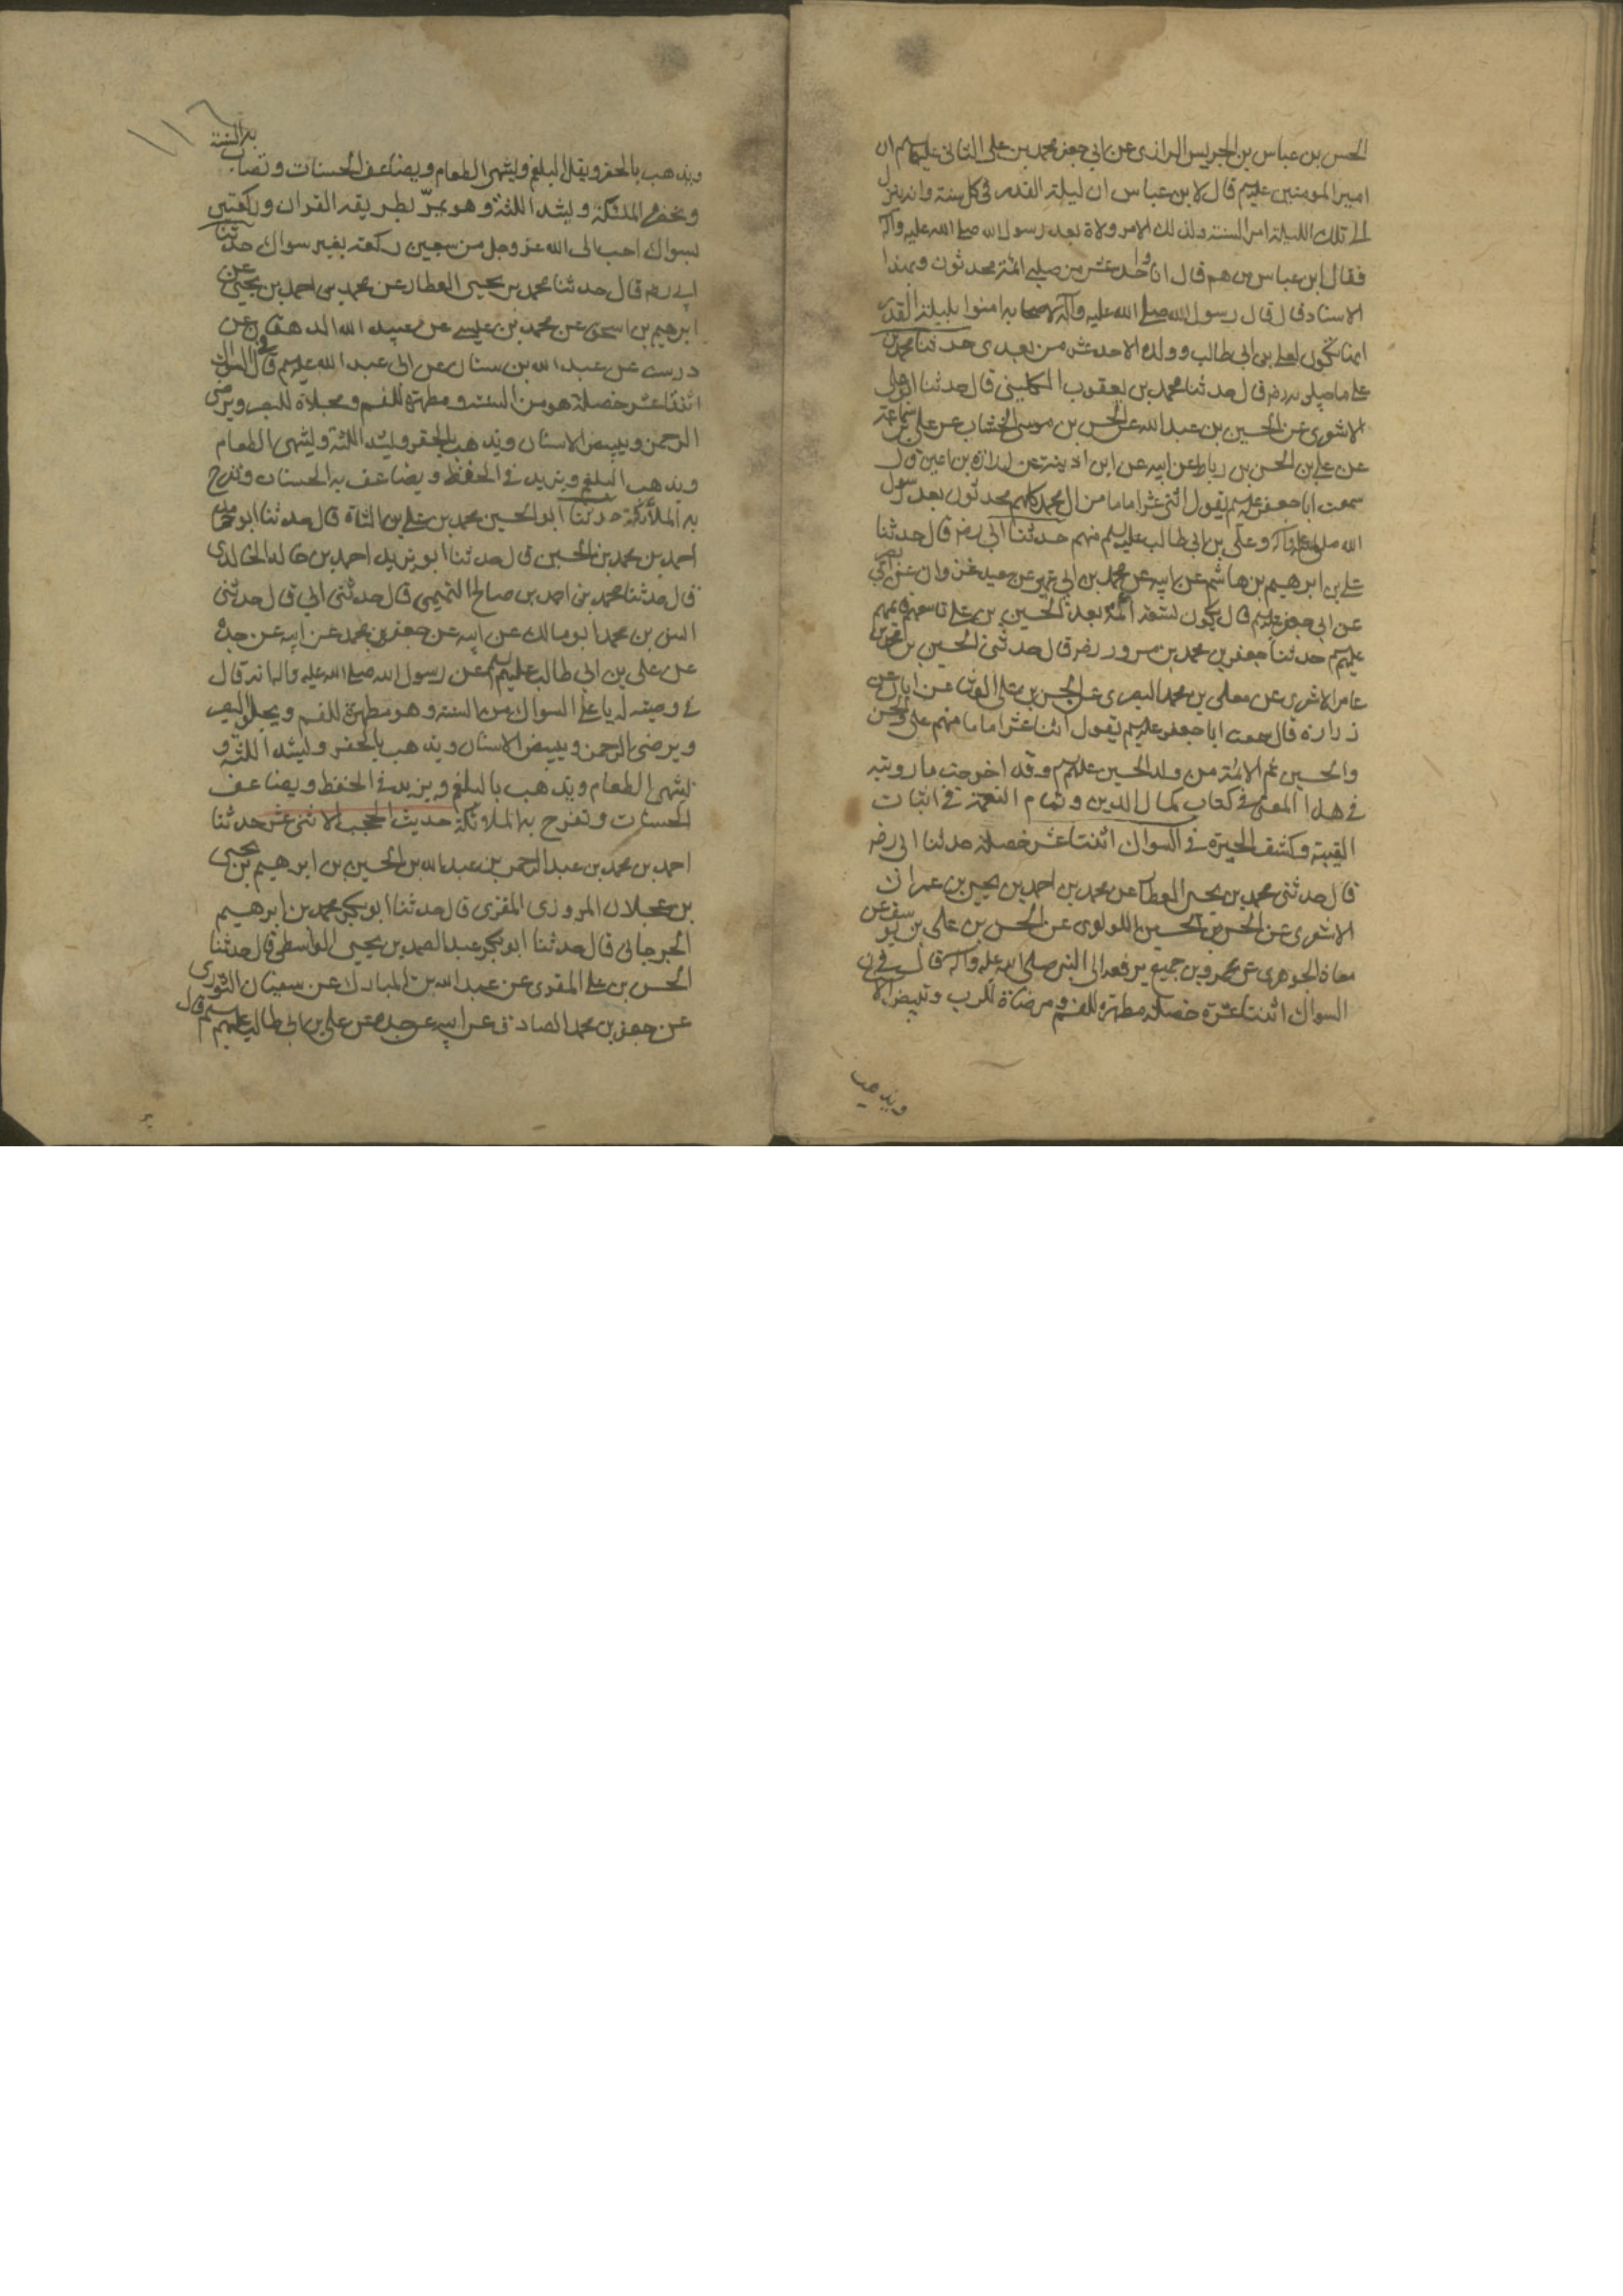 الحسن بن عباس بن الحريس الرازى عن ابي جعفر محمد بن على الثانى عليهم ان
امير المومنين عليهم قال لابن عباس ان ليلة القدر فى كل سنة وانه ينزل
فى تلك الليلة امر السنة ولذلك الامر ولاة بعد رسول الله صلى الله عليه وآله
فقال ابن عباس من هم قال انا واحد عشر من صلبى ائمة محدثون وبهذا
الاسناد قال قال رسول الله صلى الله عليه وآله لاصحابه امنوا بليلة القدر
انها تكون لعلى بن ابي طالب وولده الاحد عشر من بعدى حدثنا محمد بن
على ماجيلويه رضه قال حدثنا محمد بن يعقوب الكلينى قال حدثنا ابو على
الاشعرى عن الحسين بن عبد الله عن الحسن بن موسى الخشاب عن على بن سماعة
عن على بن الحسن بن رباط عن ابيه عن ابن اذينة عن زرارة بن اعين قال
سمعت ابا جعفر عليهم يقول اثنى عشر اماما من ال محمد كلهم محدثون بعد رسول
الله صلى الله عليه وآله وعلى بن ابي طالب عليهم منهم حدثنا ابي رضه قال حدثنا
على بن ابرهيم بن هاشم عن ابيه عن محمد بن ابي عمير عن سعيد بن غزوان عن ابي بصير
عن ابي جعفر عليهم قال يكون تسعة ائمة بعد الحسين بن على تاسعهم قايمهم
عليهم حدثنا جعفر بن محمد بن مسرور رضه قال حدثنى الحسين بن محمد بن
عامر الاشعرى عن معلى بن محمد البصرى عن الحسن بن على الوشا عن ابان عن
زرارة قال سمعت ابا جعفر عليهم يقول اثنا عشر اماما منهم على والحسن
والحسين ثم الائمة من ولد الحسين عليهم وقد اخرجت ما رويته
فى هذا المعنى فى كتاب كمال الدين وتمام النعمة فى اثبات
الغيبة وكشف الحيرة فى السواك اثنتا عشر خصلة حدثنا ابي رضه
قال حدثنى محمد بن يحيى العطار عن محمد بن احمد بن يحيى بن عمران
الاشعرى عن الحسن بن الحسين اللولوى عن الحسن بن على بن يوسف عن
معاذ الجوهرى عن عمرو بن جميع يرفعه الى النبى صلى الله عليه وآله قال فى
السواك اثنتا عشرة خصلة مطهرة للفم ومرضاة للرب وتبيض الا
ويذهب
١١٦
ويذهب بالحفر ويقل البلغم ويشهى الطعام ويضاعف الحسنات وتصاب به السنة
وتحضره الملئكة ويشد اللثة وهو يمر بطريقه القران وركعتين
بسواك احب الى الله عز وجل من سبعين ركعة بغير سواك حدثنا
ابي رضه قال حدثنا محمد بن يحيى العطار عن محمد بن احمد بن يحيى عن
ابرهيم بن اسحق عن محمد بن عيسى عن عبيد الله الدهقان عن
درست عن عبد الله بن سنان عن ابي عبد الله عليهم قال فى السواك
اثنتا عشر خصلة هو من السنة ومطهرة للفم ومجلاة للبصر ويرضى
الرحمن ويبيض الاسنان ويذهب بالحفر ويشد اللثة ويشهى الطعام
ويذهب البلغم ويزيد فى الحفظ ويضاعف به الحسنات وتفرح
به الملائكة حدثنا ابو الحسين محمد بن على بن الشاة قال حدثنا ابو حامد
احمد بن محمد بن الحسين قال حدثنا ابو يزيد احمد بن خالد الخالدى
قال حدثنا محمد بن احمد بن صالح التميمى قال حدثنى ابي قال حدثنى
انس بن محمد ابو مالك عن ابيه عن جعفر بن محمد عن ابيه عن جده
عن على بن ابي طالب عليهم عن رسول الله صلى الله عليه واله انه قال
فى وصيته له يا على السواك من السنة وهو مطهرة للفم ويجلو البصر
ويرضى الرحمن ويبيض الاسنان ويذهب بالحفر ويشد اللثة و
يشهى الطعام ويذهب بالبلغم ويزيد فى الحفظ ويضاعف
الحسنات وتفرح به الملائكة حديث الحجب الاثنى عشر حدثنا
احمد بن محمد بن عبد الرحمن بن عبد الله بن الحسين بن ابرهيم بن يحيى
بن عجلان المروزى المقرى قال حدثنا ابو بكر محمد بن ابرهيم
الجرجانى قال حدثنا ابو بكر عبد الصمد بن يحيى الواسطى قال حدثنا
الحسن بن على المقرى عن عبد الله بن المبارك عن سفيان الثورى
عن جعفر بن محمد الصادق عن ابيه عن جده عن على بن ابي طالب عليهم قال